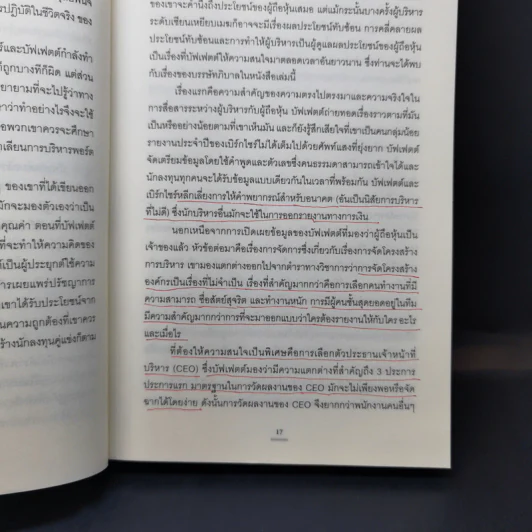 ปฏิบัติในชีวิตจริง ของ
ร์และบัฟเฟตต์กำลังทำ
ที่ถูกบางทีก็ผิด แต่ส่วน
ยายามที่จะไปรู้ว่าทาง
ว่าทำอย่างไรจึงจะใช้
อพวกเขาควรจะศึกษา
าเลียนการบริหารพอร์ต
ของเขาที่ได้เขียนออก
มักจะมองตัวเองว่าเป็น
คุณค่า ตอนที่บัฟเฟตต์
จะทำให้ความคิดของ
ด้เป็นผู้ประยุกต์ใช้ความ
ารเผยแพร่ปรัชญาการ
เขาได้รับประโยชน์จาก
นความถูกต้องที่เขาควร
ร้างนักลงทุนคู่แข่งก็ตาม
ของเขาจะคำนึงถึงประโยชน์ของผู้ถือหุ้นเสมอ แต่แม้กระนั้นบางครั้งผู้บริหาร
ระดับเซียนเหยียบเมฆก็อาจจะมีเรื่องผลประโยชน์ทับซ้อน การคลี่คลายผล
ประโยชน์ทับซ้อนและการทำให้ผู้บริหารเป็นผู้ดูแลผลประโยชน์ของผู้ถือหุ้น
เป็นเรื่องที่บัฟเฟตต์ให้ความสนใจมาตลอดเวลาอันยาวนาน ซึ่งท่านจะได้พบ
กับเรื่องของบรรษัทภิบาลในหนังสือเล่มนี้
เรื่องแรกคือความสำคัญของความตรงไปตรงมาและความจริงใจใน
การสื่อสารระหว่างผู้บริหารกับผู้ถือหุ้น บัฟเฟตต์ถ่ายทอดเรื่องราวตามที่มัน
เป็นหรืออย่างน้อยตามที่เขาเห็นมัน และก็ยังรู้สึกเสียใจที่เขาเป็นคนกลุ่มน้อย
รายงานประจำปีของเบิร์กไชร์ไม่ได้เต็มไปด้วยศัพท์แสงที่ยุ่งยาก บัฟเฟตต์
จัดเตรียมข้อมูลโดยใช้คำพูดและตัวเลขซึ่งคนธรรมดาสามารถเข้าใจได้และ
นักลงทุนทุกคนจะได้รับข้อมูลแบบเดียวกันในเวลาที่พร้อมกัน บัฟเฟตต์และ
เบิร์กไชร์หลีกเลี่ยงการให้คำพยากรณ์สำหรับอนาคต (อันเป็นนิสัยการบริหาร
ที่ไม่ดี) ซึ่งนักบริหารอื่นมักจะใช้ในการออกรายงานทางการเงิน
นอกเหนือจากการเปิดเผยข้อมูลของบัฟเฟตต์ที่มองว่าผู้ถือหุ้นเป็น
เจ้าของแล้ว หัวข้อต่อมาคือเรื่องการจัดการซึ่งเกี่ยวกับเรื่องการจัดโครงสร้าง
การบริหาร เขามองแตกต่างออกไปจากตำราทางวิชาการว่าการจัดโครงสร้าง
องค์กรเป็นเรื่องที่ไม่จำเป็น เรื่องที่สำคัญมากกว่าคือการเลือกคนทำงานที่มี
ความสามารถ ซื่อสัตย์สุจริต และทำงานหนัก การมีผู้คนชั้นสุดยอดอยู่ในทีม
มีความสำคัญมากกว่าการที่จะมาออกแบบว่าใครต้องรายงานให้กับใคร อะไร
และเมื่อไร
ที่ต้องให้ความสนใจเป็นพิเศษคือการเลือกตัวประธานเจ้าหน้าที่
บริหาร (CEO) ซึ่งบัฟเฟตต์มองว่ามีความแตกต่างที่สำคัญถึง 3 ประการ
ประการแรก มาตรฐานในการวัดผลงานของ CEO มักจะไม่เพียงพอหรือจัด
ฉากได้โดยง่าย ดังนั้นการวัดผลงานของ CEO จึงยากกว่าพนักงานคนอื่นๆ
17